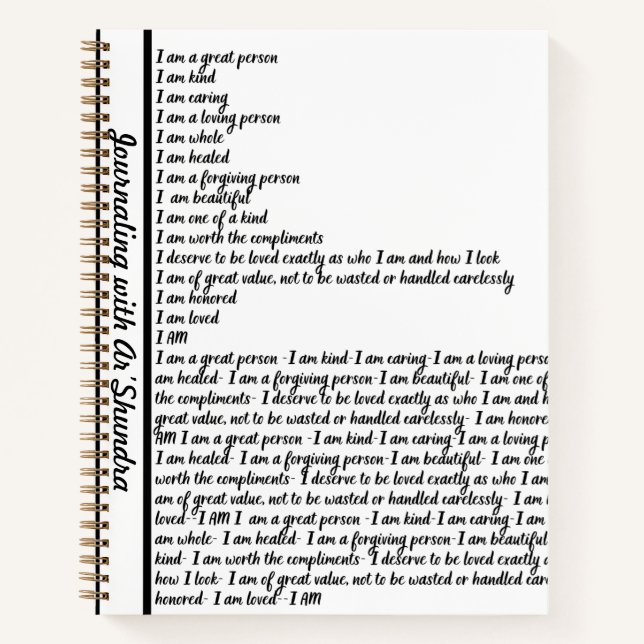 Journaling with Ar'Shundra
I am a great person
I am kind
I am caring
I am a loving person
I am whole
I am healed
I am a forgiving person
I am beautiful
I am one of a kind
I am worth the compliments
I deserve to be loved exactly as who I am and how I look
I am of great value, not to be wasted or handled carelessly
I am honored
I am loved
I AM
I am a great person -I am kind-I am caring-I am a loving perso
am healed- I am a forgiving person-I am beautiful- I am one of
the compliments- I deserve to be loved exactly as who I am and h
great value, not to be wasted or handled carelessly- I am honore
AM I am a great person -I am kind-I am caring-I am a loving p
I am healed- I am a forgiving person-I am beautiful- I am one
worth the compliments- I deserve to be loved exactly as who I am
am of great value, not to be wasted or handled carelessly- I am h
loved--I AM I am a great person -I am kind-I am caring-I am
am whole- I am healed- I am a forgiving person-I am beautiful
kind- I am worth the compliments- I deserve to be loved exactly a
how I look- I am of great value, not to be wasted or handled care
honored- I am loved--I AM